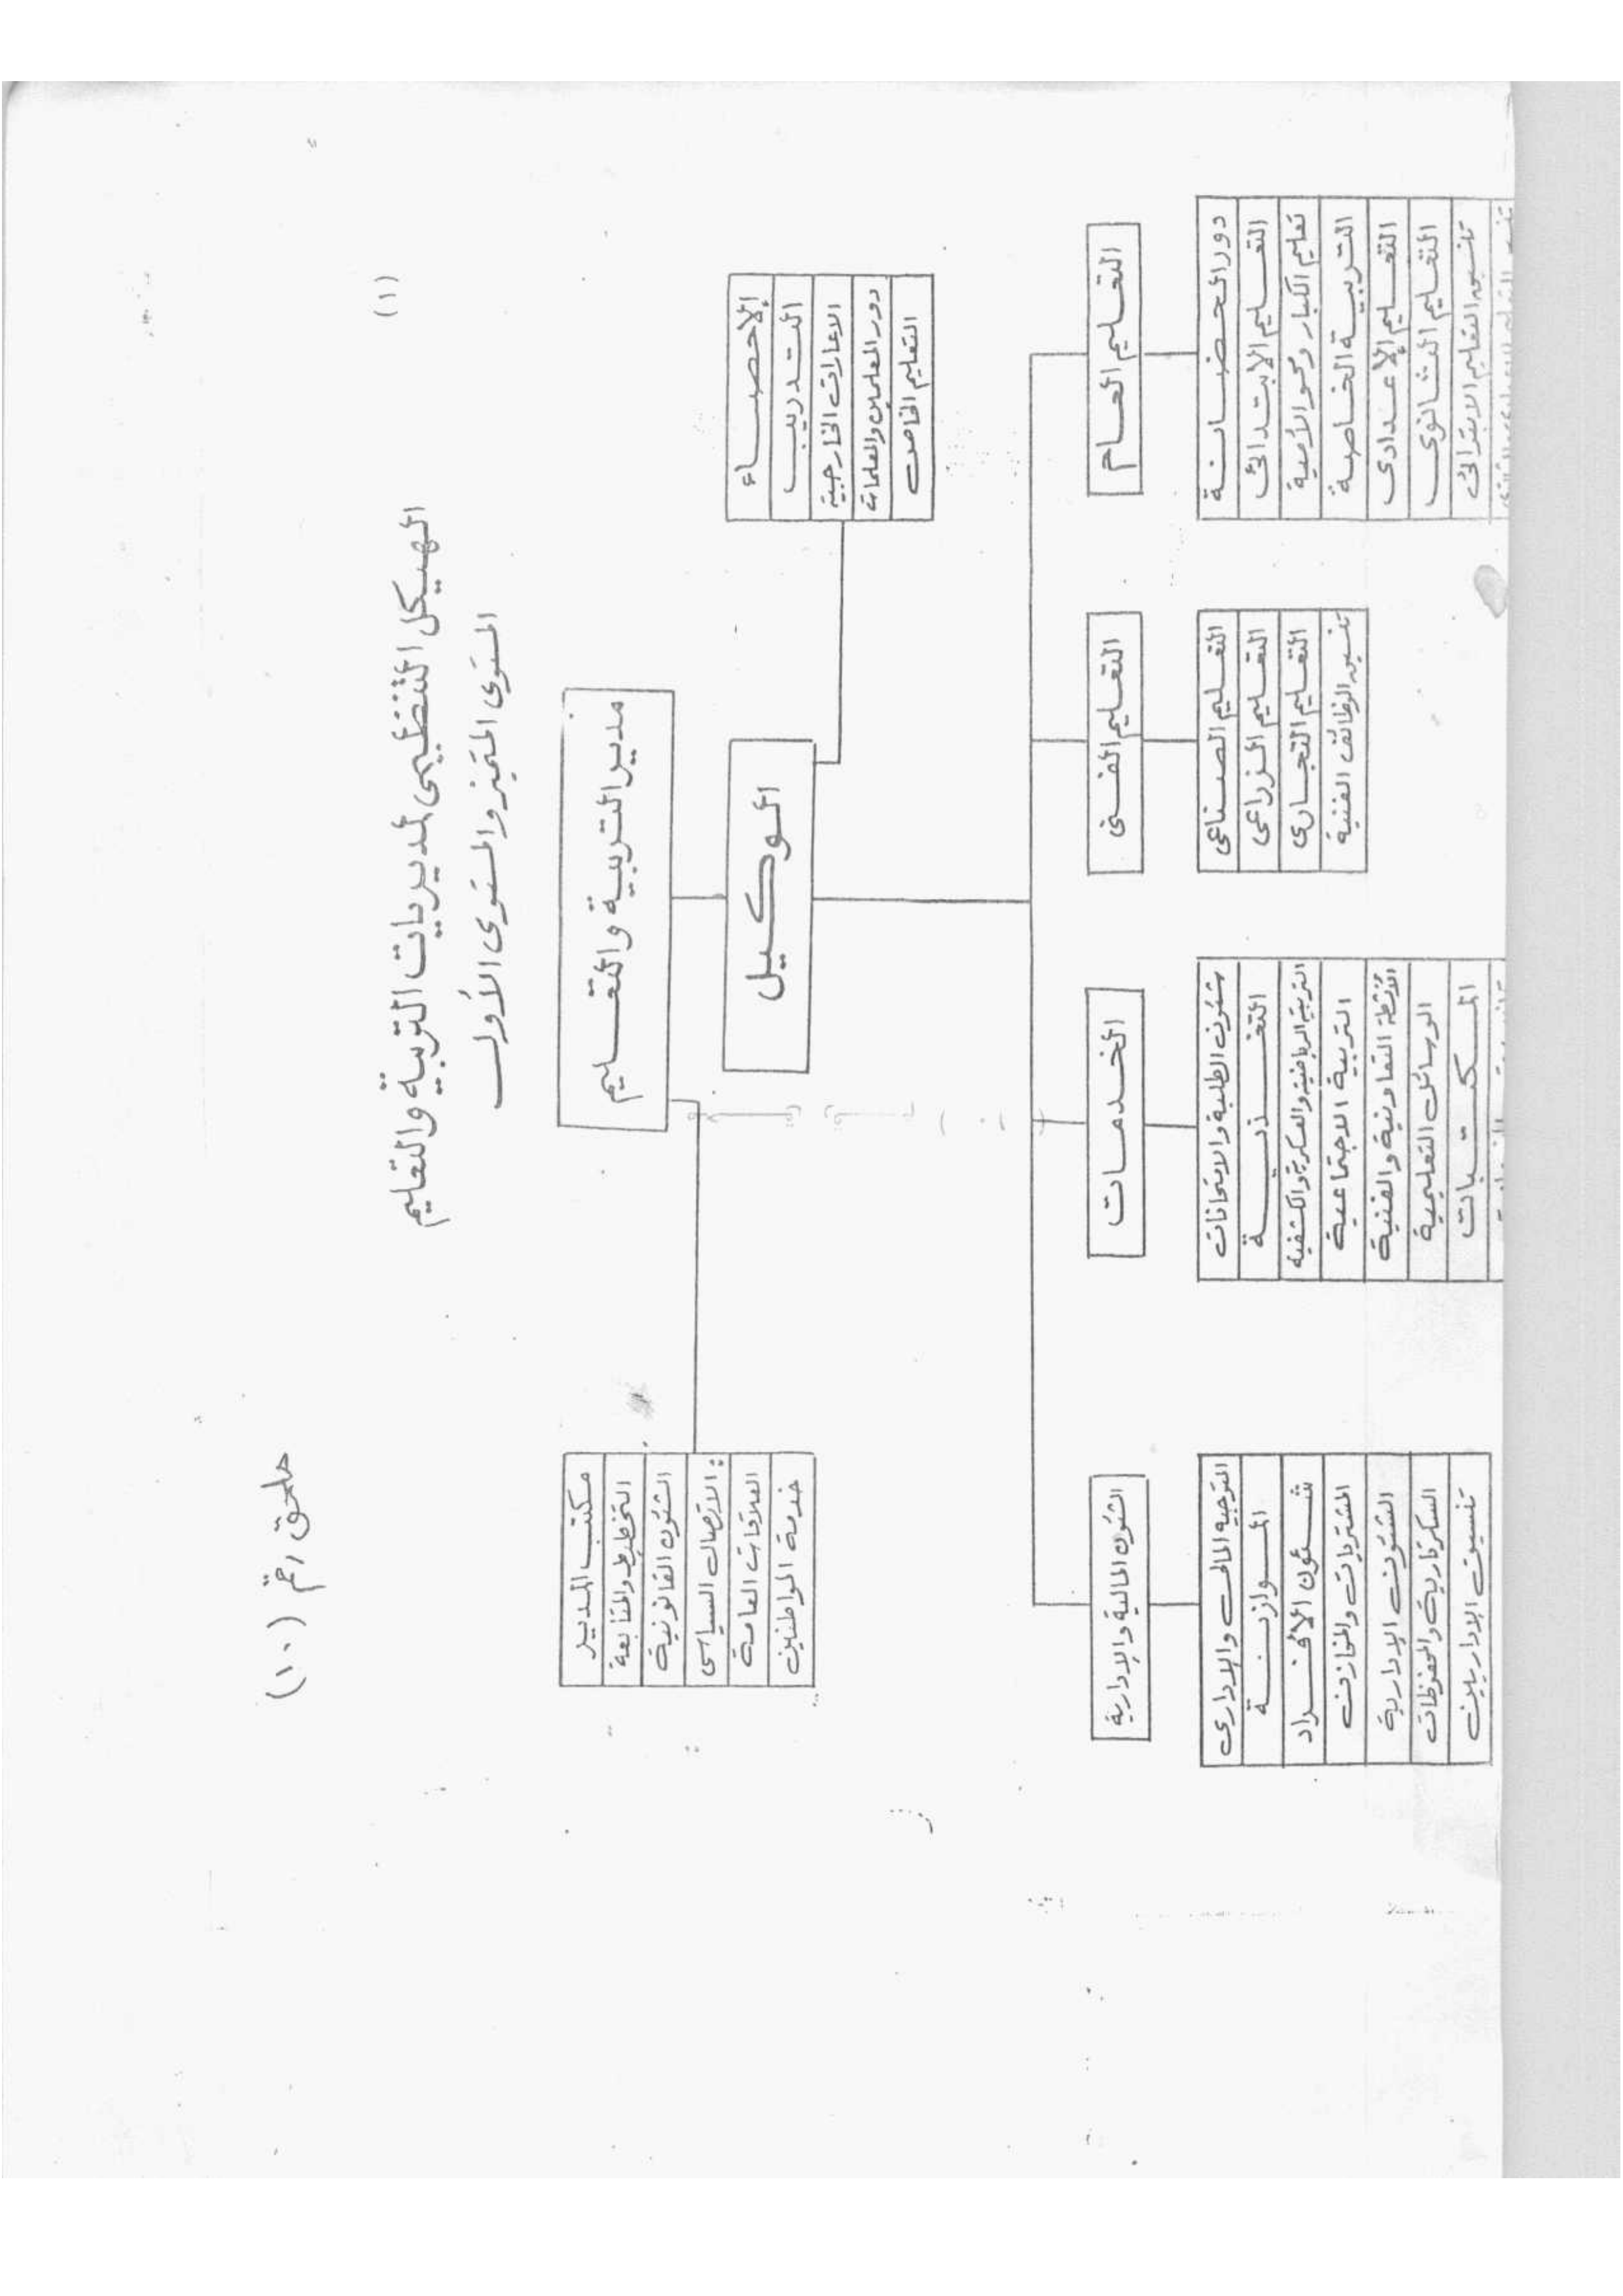 ملحق رقم (١٠)
(١)
الهيكل التنظيمى لمديريات التربية والتعليم
المستوى المتميز والمستوى الأول
مدير التربية والتعليم
مكتب المدير
التخطيط والمتابعة
الشئون القانونية
الاتصال السياسى
العلاقات العامة
خدمة المواطنين
الوكيل
الإحصاء
التدريب
الاعارات الخارجية
دور المعلمين والمعلمات
التعليم الخاص
التعليم العام
دور الحضانة
التعليم الابتدائى
تعليم الكبار ومحو الأمية
التربية الخاصة
التعليم الإعدادى
التعليم الثانوى
تنسيق التعليم الابتدائى
التعليم الفنى
التعليم الصناعى
التعليم الزراعى
التعليم التجارى
تنسيق الوظائف الفنية
الخدمات
شئون الطلبة والامتحانات
التغذية
التربية الرياضية والعسكرية والكشفية
التربية الاجتماعية
الأنشطة التعاونية والفنية
الوسائل التعليمية
المكتبات
الشئون المالية والإدارية
التوجيه المالى والإدارى
الموازنة
شئون الافراد
المشتريات والمخازن
الشئون الإدارية
السكرتارية والمحفوظات
تنسيق الإداريين